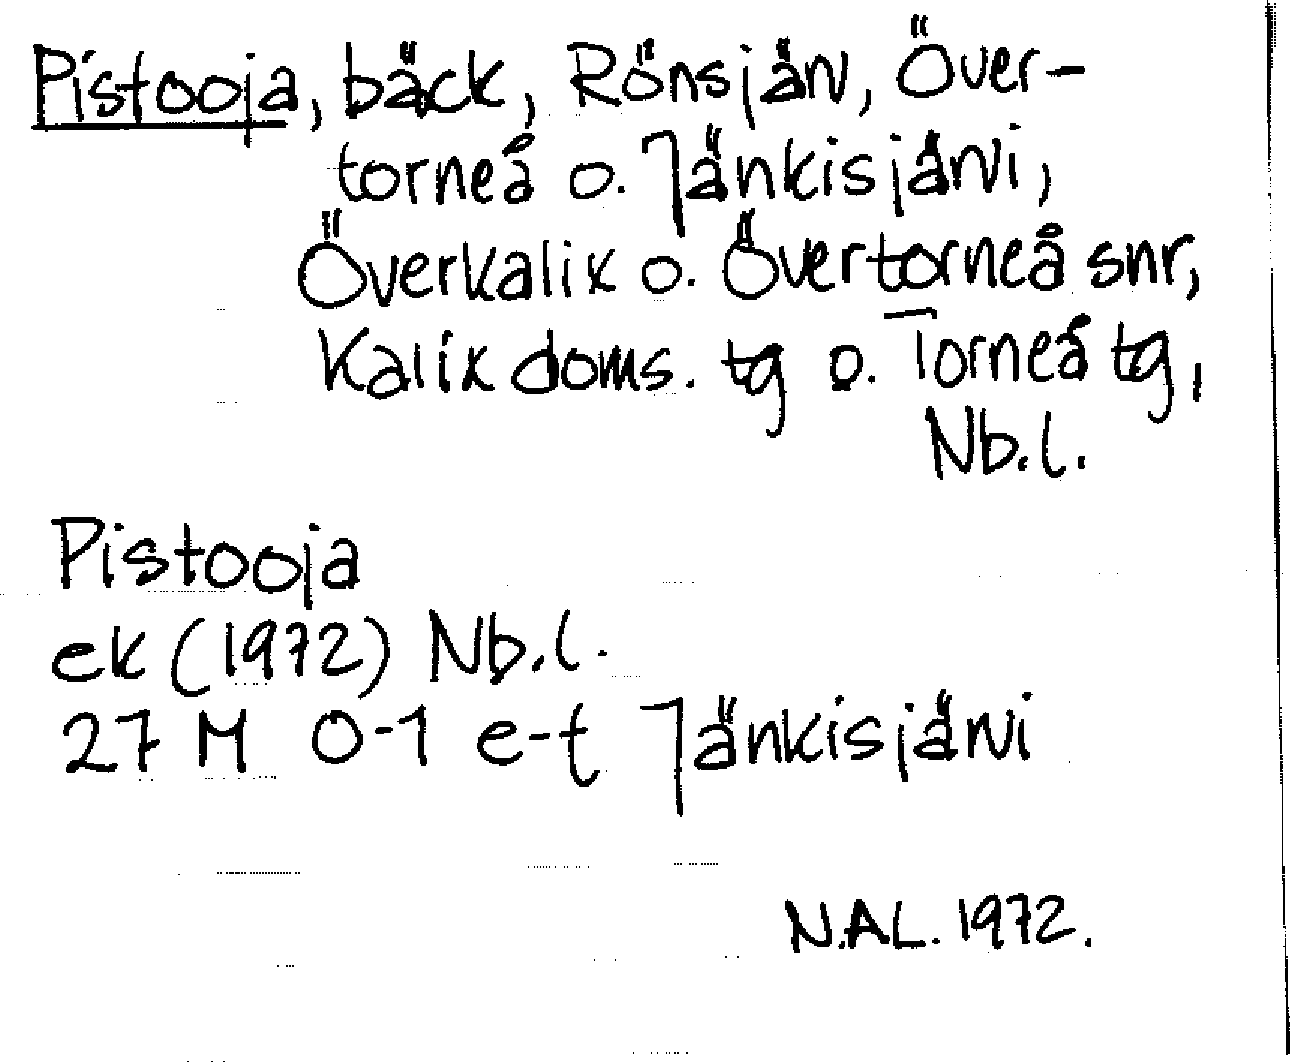 Pistooja, bäck, Rönsjärv, Över-
torneå o. Jänkisjärvi,
Överkalix o. Övertorneå snr,
Kalix doms. tg o. Torneå tg,
Nb.l.
Pistooja
ek (1972) Nb.l.
27 M 0-1 e-f Jänkisjärvi
N.A.L. 1972.